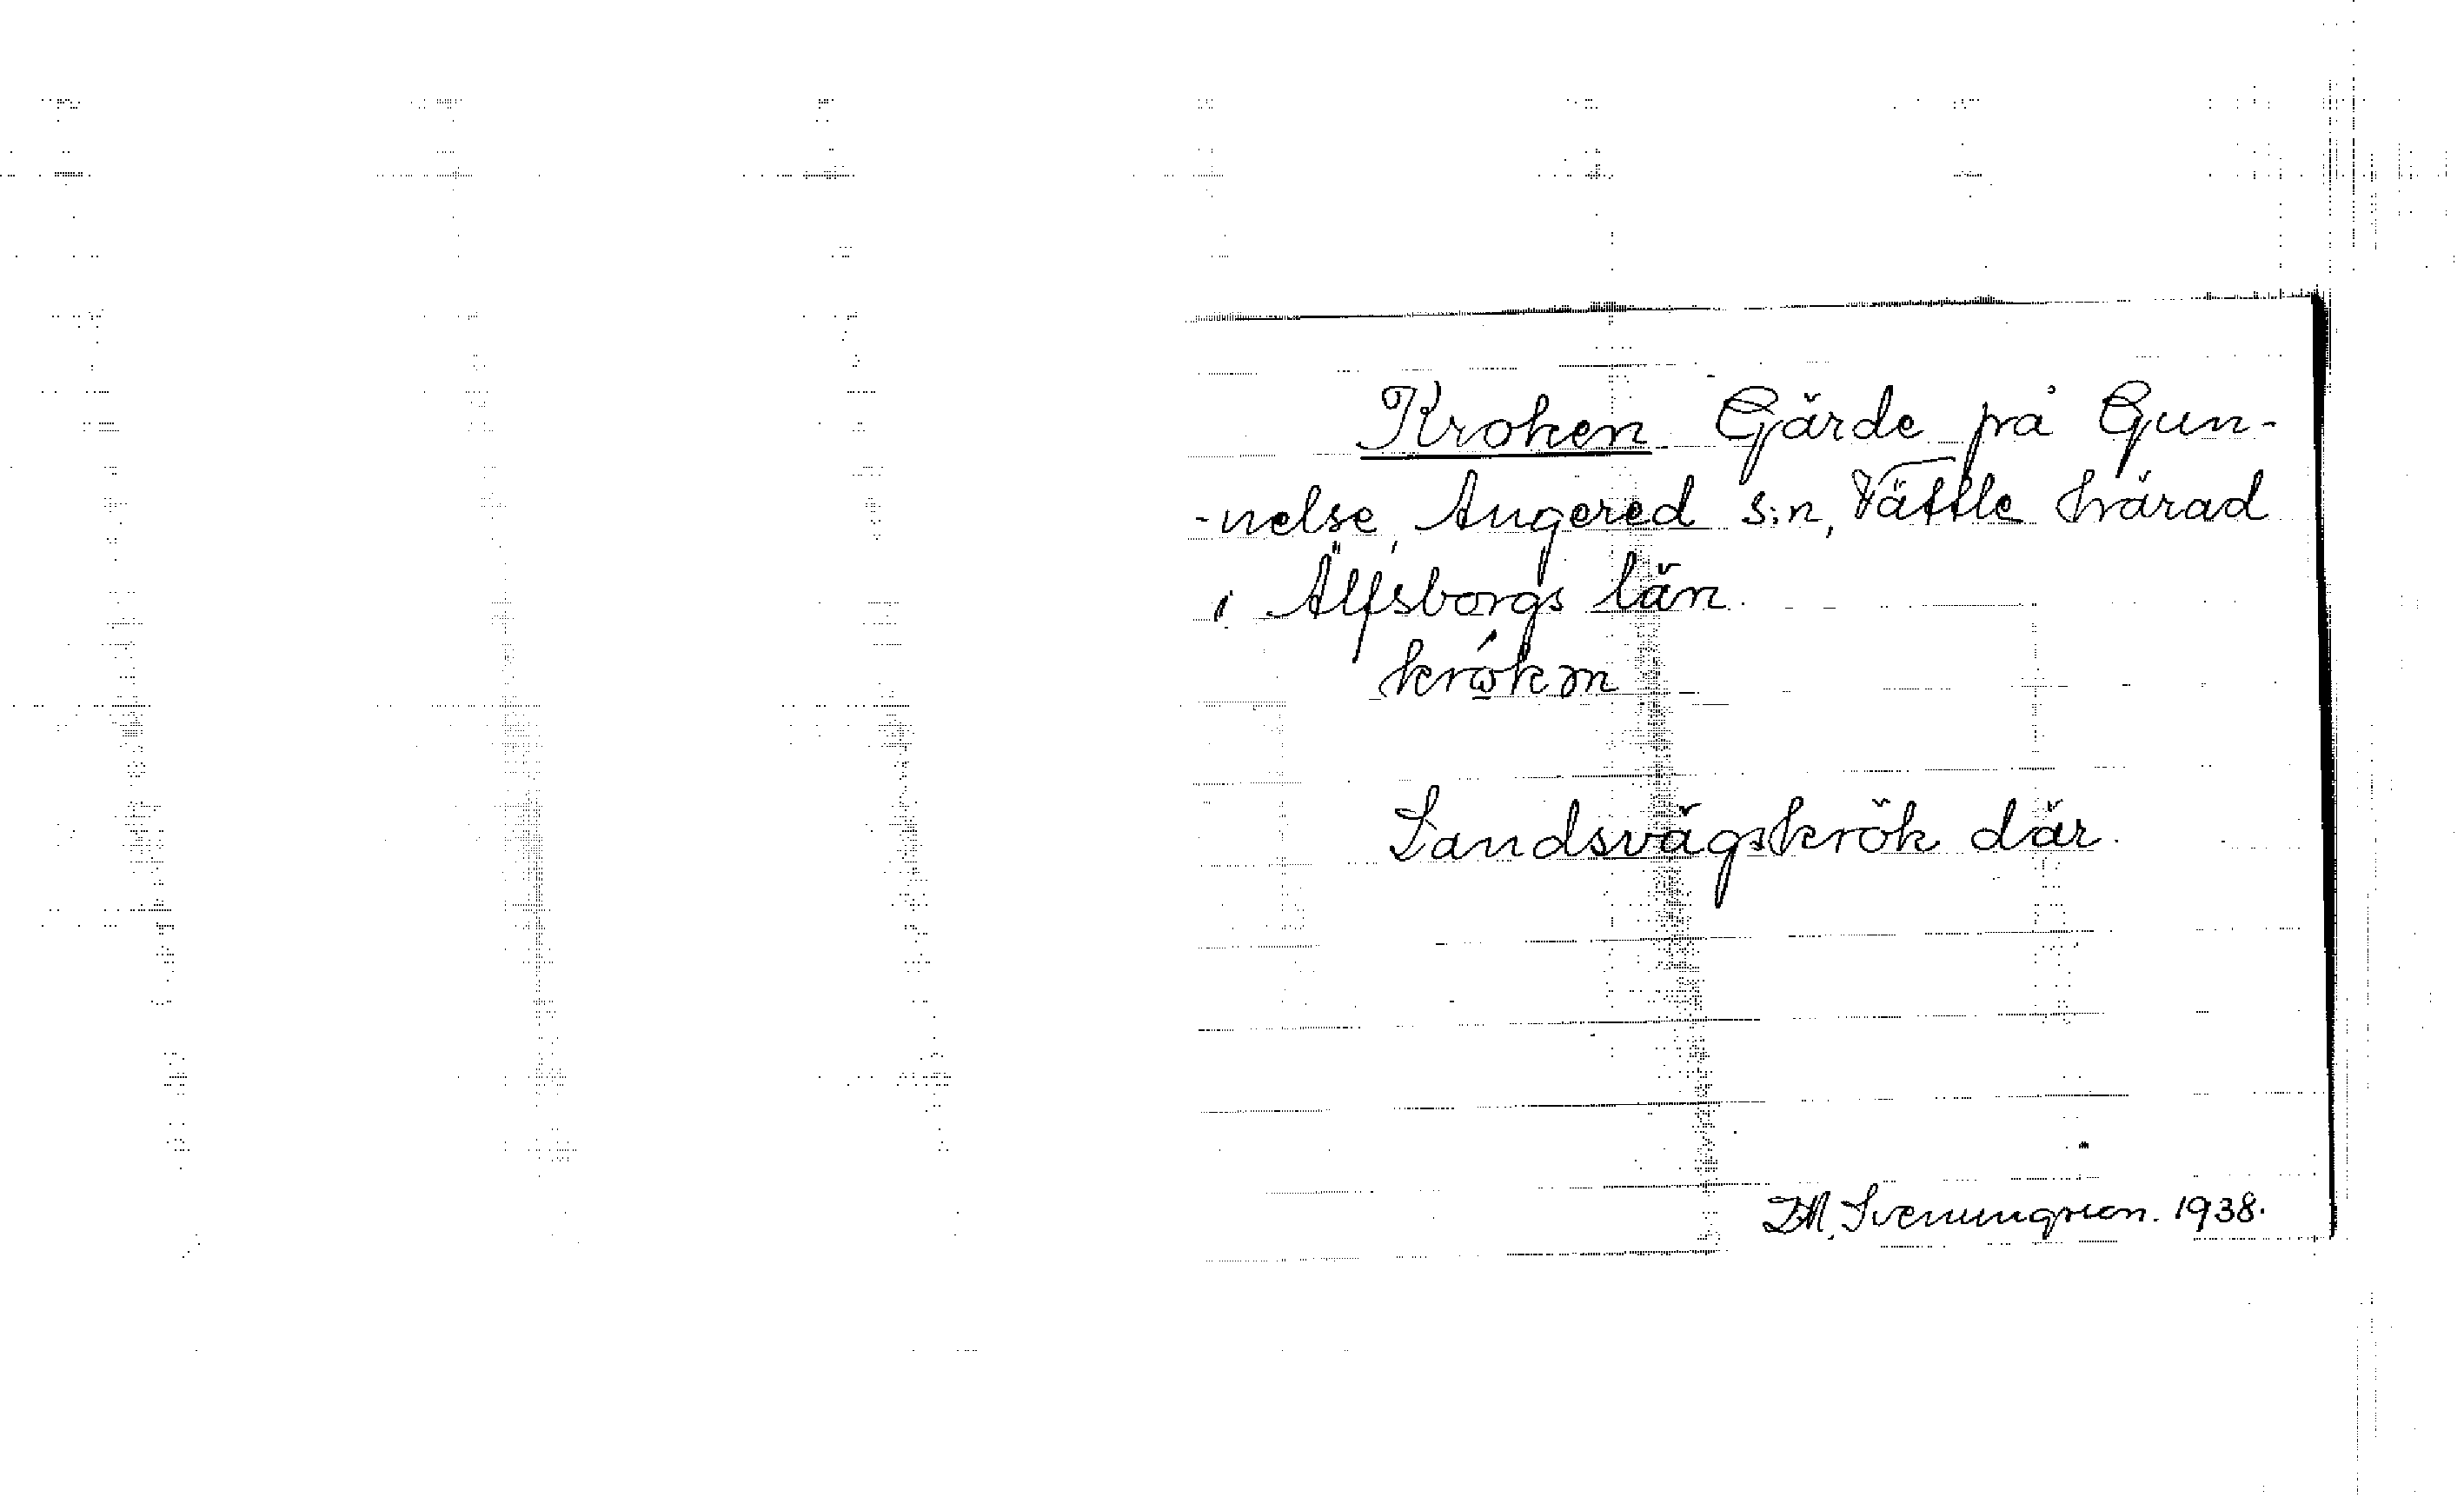 Kroken Gärde på Gun-
-nelse, Angered s:n, Vättle härad
i Älfsborgs län.
Landsvägskrök där.
Svenungsson. 1938.